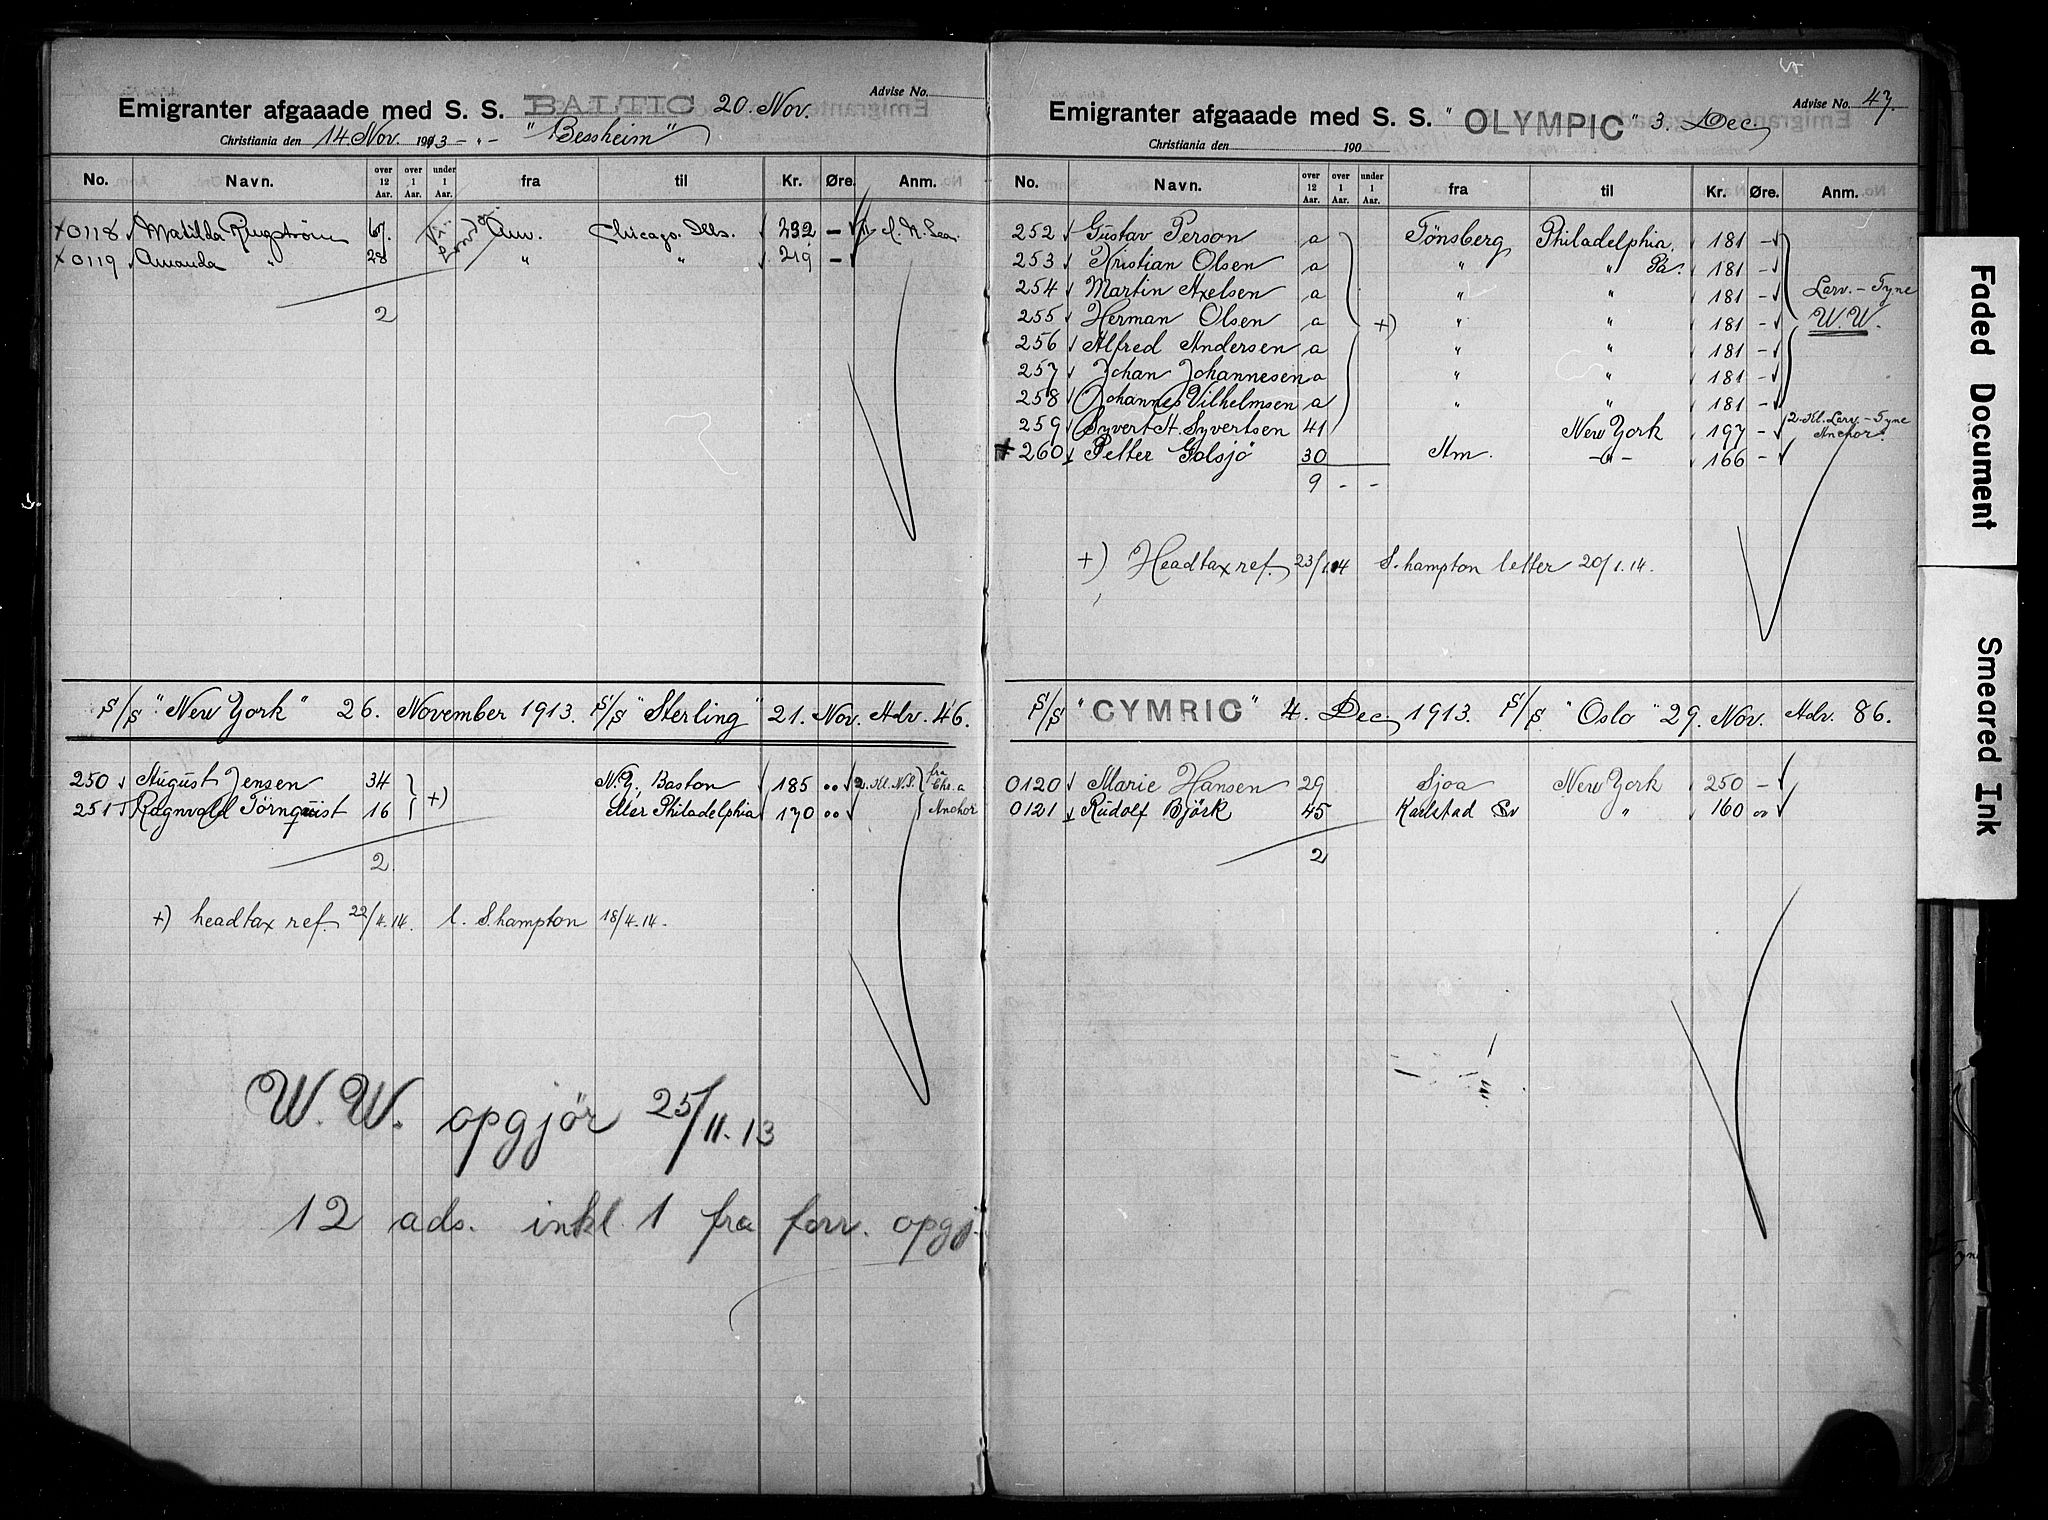 Emigranter afgaaade med S. S. BALTIC 20. Nov. Advise No.
Christiania den 14. Nov. 1913 - " - "Bessheim"
No. Navn. over 12 Aar. over 1 Aar. under 1 Aar. fra til Kr. Øre. Anm.
0118 Matilda Ringström 67. Am. Chicago. Ills. 232 –
0119 Amanda " 28 " " 219 –
2
S/S "New York" 26. November 1913. S/S "Sterling" 21. Nov. Adv. 46.
250 August Jensen 34 N.Y., Boston 185 " 2. Kl. N.S. fra Chr.a
251 Ragnvald Törnquist 16 +) eller Philadelphia 170 " Anchor
2.
+) headtax ref. 22/4.14. l. S.hampton 18/4.14.
W. W. opgjör 25/11.13
12 ads. inkl. 1 fra forr. opgj.
Emigranter afgaaade med S. S. "OLYMPIC" 3. Dec. Advise No. 47.
Christiania den 190
No. Navn. over 12 Aar. over 1 Aar. under 1 Aar. fra til Kr. Øre. Anm.
252 Gustav Person a Tönsberg Philadelphia 181 –
253 Kristian Olsen a " " Pa. 181 –
254 Martin Axelsen a " " 181 – Larv. – Tyne
255 Herman Olsen a +) " " 181 – W.W.
256 Alfred Andersen a " " 181 –
257 Johan Johannesen a " " 181 –
258 Johannes Vilhelmsen a " " 181 –
259 Syvert A. Syvertsen 41 New York 197 – 2. Kl. Larv. – Tyne Anchor.
260 Petter Golsjö 30 Am. –"– 166 –
9 – –
+) Headtax ref. 23/1.14 S.hampton letter 20/1.14.
S/S "CYMRIC" 4. Dec 1913. S/S "Oslo" 29. Nov. Adv. 86.
0120 Marie Hansen 29 Sjoa New York 250 –
0121 Rudolf Björk 45 Karlstad Sv " 160 "
2
Faded Document
Smeared Ink